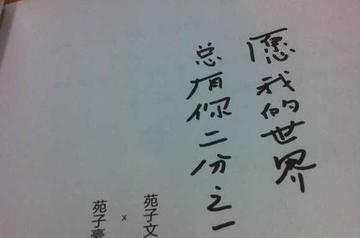 愿我的世界
总有你二分之一
苑子文
x
苑子豪